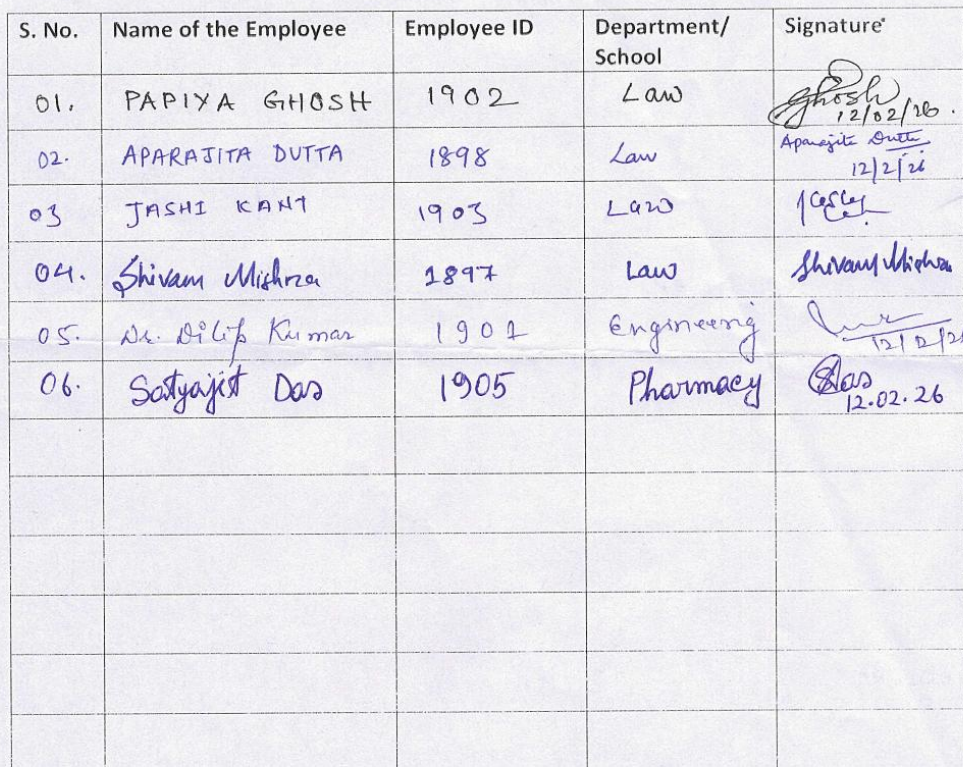 S. No. Name of the Employee Employee ID Department/ School Signature
01. PAPIYA GHOSH 1902 Law Ghosh 12/02/26.
02. APARAJITA DUTTA 1898 Law Aparajita Dutta 12/2/26
03 JASHI KANT 1903 Law
04. Shivam Mishra 1897 Law Shivam Mishra
05. Dr. Dilip Kumar 1901 Engineering 12/2/26
06. Satyajit Das 1905 Pharmacy SDas 12.02.26